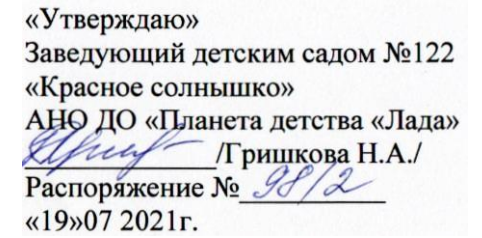 «Утверждаю»
Заведующий детским садом №122
«Красное солнышко»
АНО ДО «Планета детства «Лада»
/Гришкова Н.А./
Распоряжение № 98/2
«19»07 2021г.